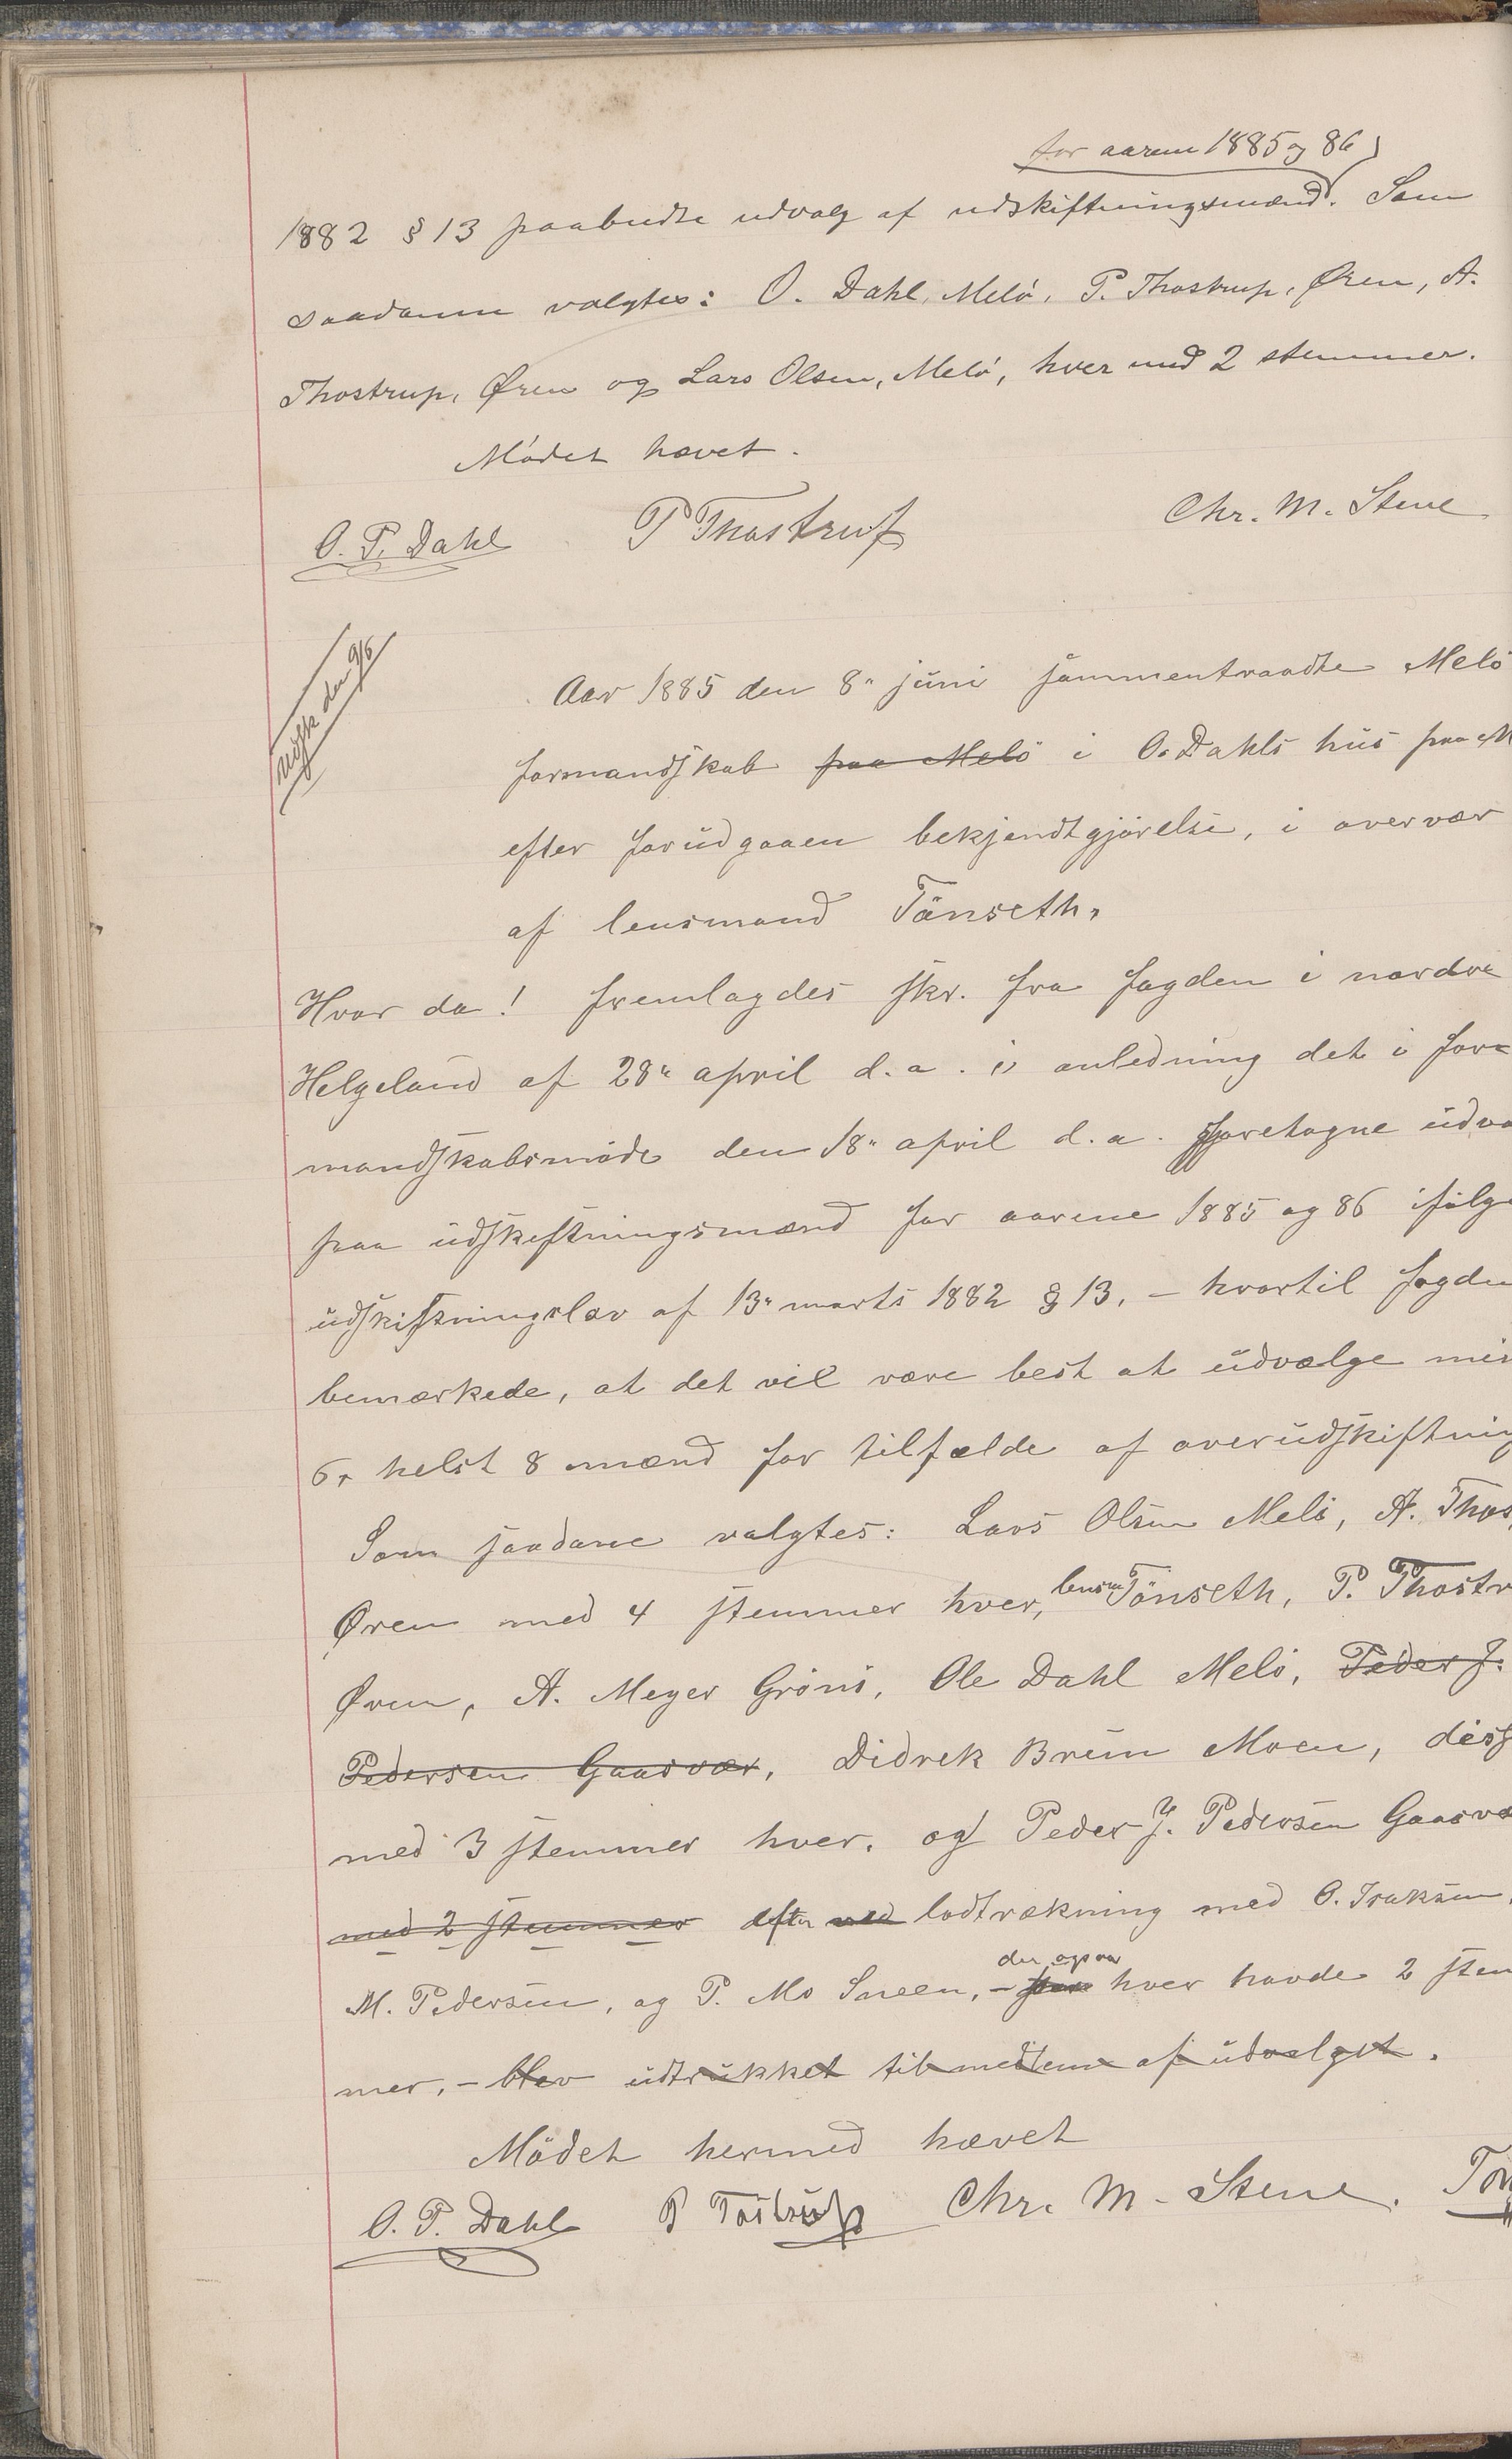 for aarene 1885 og 86
1882 § 13 paabudte udvalg af udskiftningsmænd. Som
saadanne valgtes: O. Dahl, Melö, P. Thostrup, Øren, A.
Thostrup, Øren og Lars Olsen, Melö, hver med 2 stemmer.
Mödet hævet.
O. P. Dahl P Thostrup Chr. M. Stene
udsk den 9/6
Aar 1885 den 8" juni sammentraadte Melö
formandskab paa Melö i O. Dahls hus paa M
efter forudgaaen bekjendtgjörelse, i overvær
af lensmand Tönseth.
Hvor da! fremlagdes skr. fra fogden i nordre
Helgeland af 28" april d. a. i anledning det i for-
mandskabsmöde den 18" april d. a. foretagne udva
paa udskiftningsmænd for aarene 1885 og 86 ifölge
udskiftningslov af 13" marts 1882 § 13, - hvortil fogden
bemærkede, at det vil være best at udvælge min
6, helst 8 mænd for tilfælde af overudskiftning
Som saadane valgtes: Lars Olsen Melö, A. Thos
Øren med 4 stemmer hver, lensm Tönseth, P. Thostr
Øren, A. Meyer Grönö, Ole Dahl Melö, Peder J.
Pedersen Gaasvær, Didrek Brun Moen, diss
med 3 stemmer hver. og Peder J. Pedersen Gaasvæ
med 2 stemmer efter ved lodtrækning med O. Isaksen,
M. Pedersen, og P. Mo Sneen, - der ogsaa hver havde 2 stem
mer, - blev udtrukket til medlem af udvalget.
Mödet hermed hævet
O. P. Dahl P Tostrup Chr. M. Stene. Tön